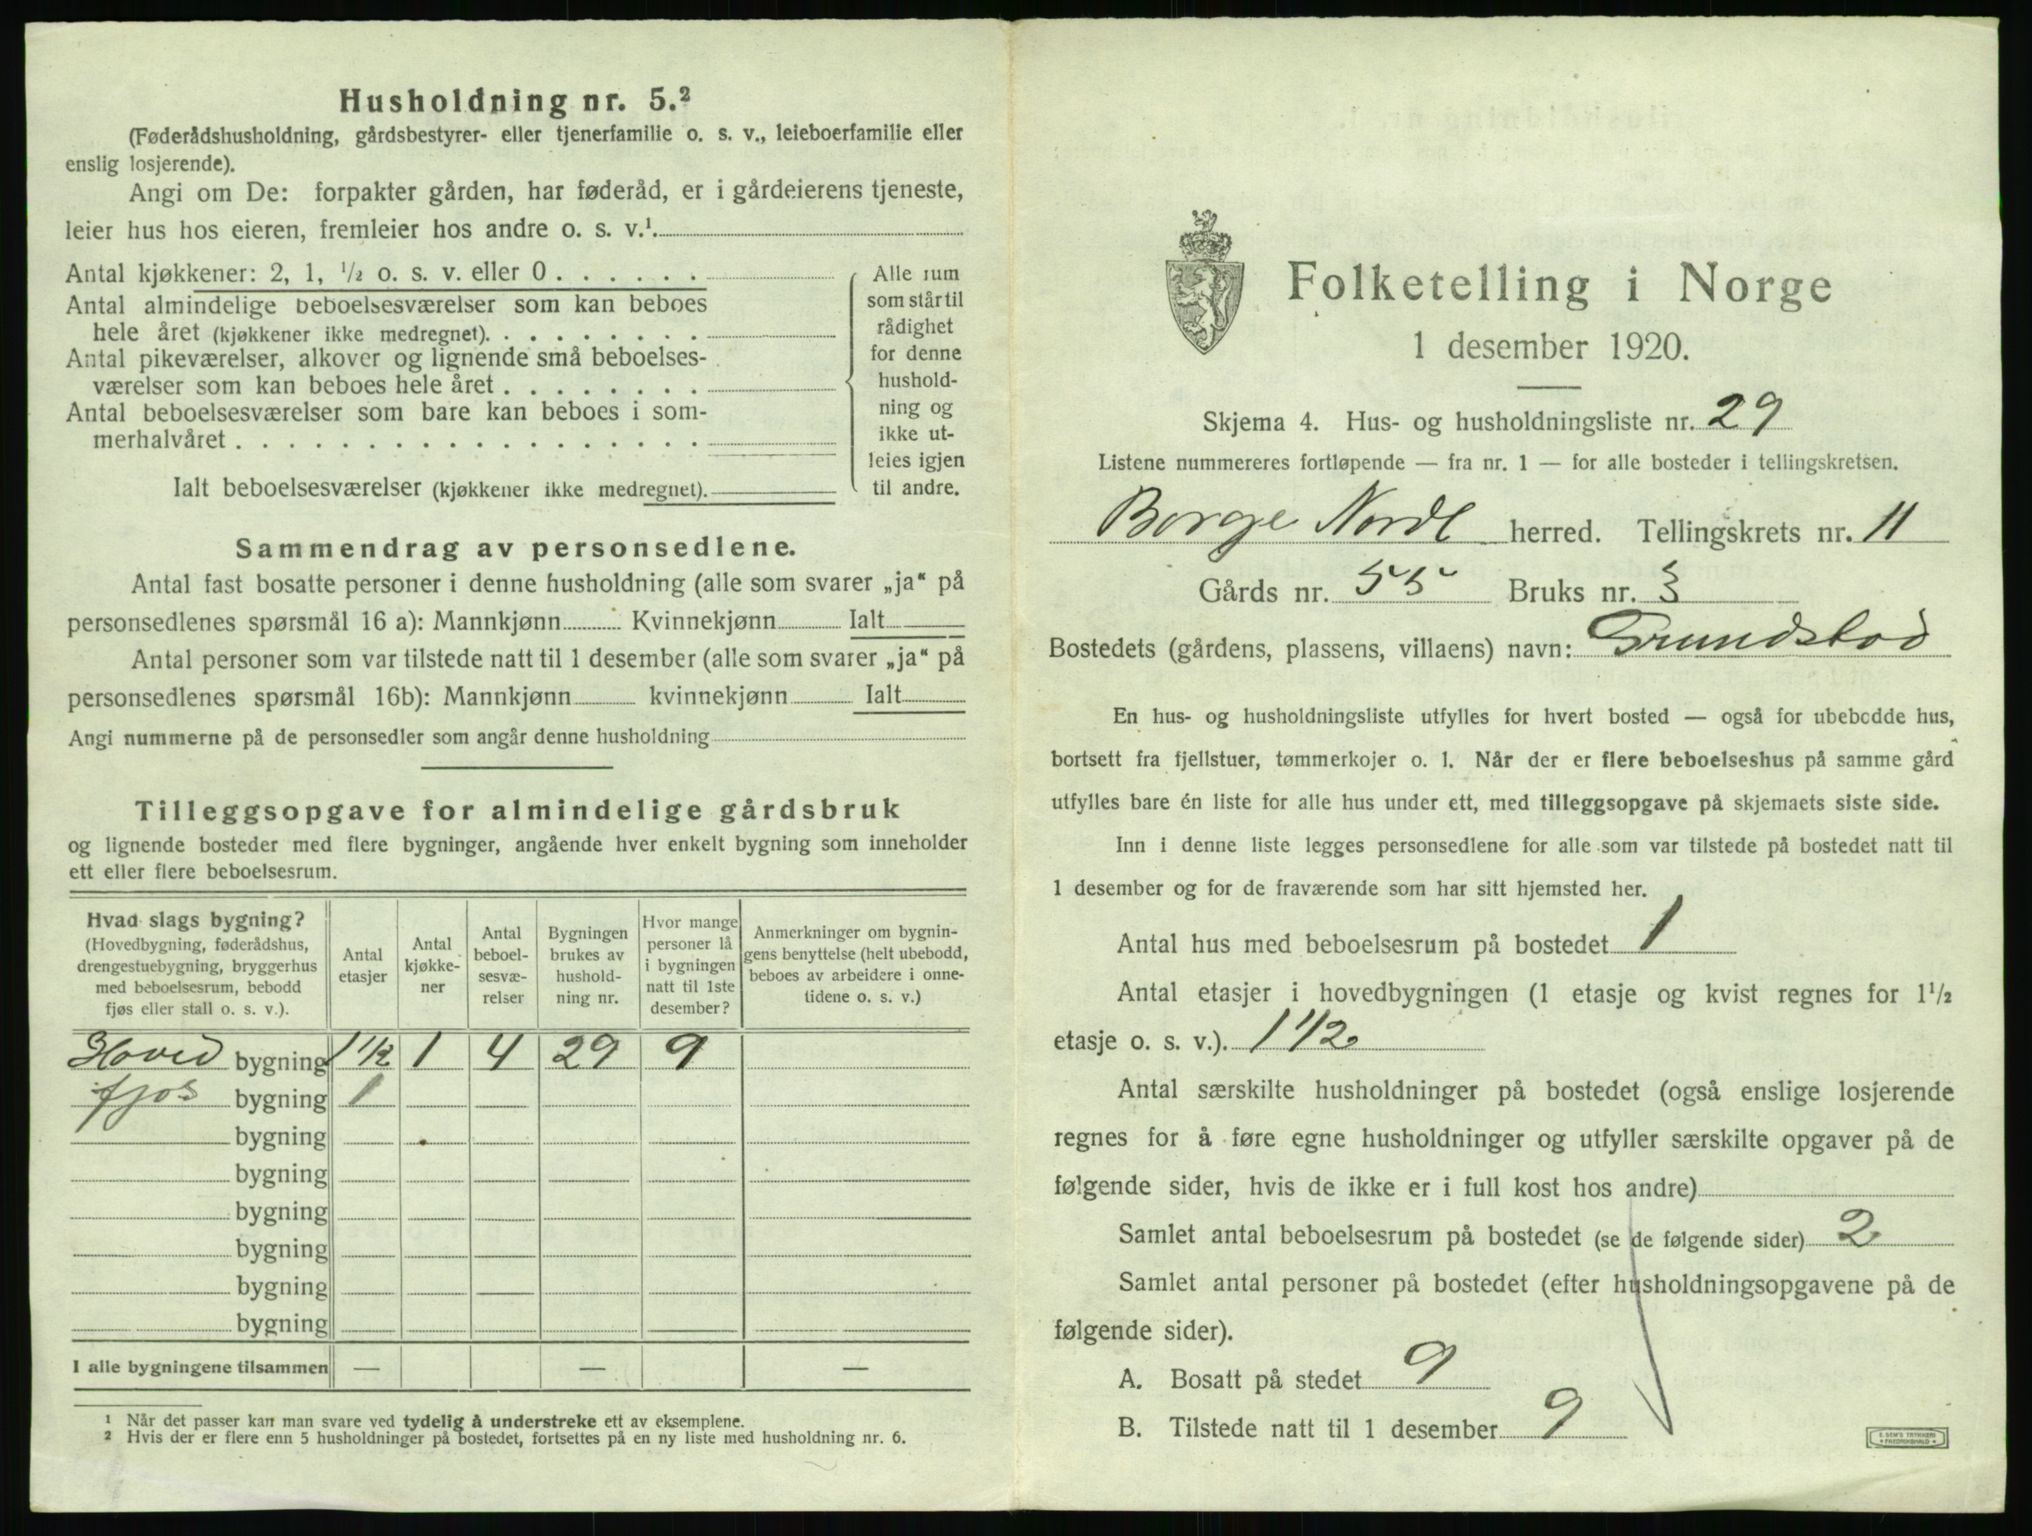 Husholdning nr. 5.²
(Føderådshusholdning, gårdsbestyrer- eller tjenerfamilie o. s. v., leieboerfamilie eller
enslig losjerende).
Angi om De: forpakter gården, har føderåd, er i gårdeierens tjeneste,
leier hus hos eieren, fremleier hos andre o. s. v.¹.
Antal kjøkkener: 2, 1, ½ o. s. v. eller 0 . . . . . .
Antal almindelige beboelsesværelser som kan beboes
hele året (kjøkkener ikke medregnet). . . . . . . . .
Antal pikeværelser, alkover og lignende små beboelses-
værelser som kan beboes hele året . . . . . . . .
Antal beboelsesværelser som bare kan beboes i som-
merhalvåret . . . . . . . . . . . . . . . . . .
Ialt beboelsesværelser (kjøkkener ikke medregnet).
Alle rum
som står til
rådighet
for denne
hushold-
ning og
ikke ut-
leies igjen
til andre.
Sammendrag av personsedlene.
Antal fast bosatte personer i denne husholdning (alle som svarer „ja“ på
personsedlenes spørsmål 16 a): Mannkjønn Kvinnekjønn Ialt
Antal personer som var tilstede natt til 1 desember (alle som svarer „ja“ på
personsedlenes spørsmål 16b): Mannkjønn kvinnekjønn Ialt
Angi nummerne på de personsedler som angår denne husholdning
Tilleggsopgave for almindelige gårdsbruk
og lignende bosteder med flere bygninger, angående hver enkelt bygning som inneholder
ett eller flere beboelsesrum.
Hvad slags bygning?
(Hovedbygning, føderådshus,
drengestuebygning, bryggerhus
med beboelsesrum, bebodd
fjøs eller stall o. s. v.).
Antal
etasjer
Antal
kjøkke-
ner
Antal
beboel-
sesvæ-
relser
Bygningen
brukes av
hushold-
ning nr.
Hvor mange
personer lå
i bygningen
natt til 1ste
desember?
Anmerkninger om bygnin-
gens benyttelse (helt ubebodd,
beboes av arbeidere i onne-
tidene o. s. v.)
Hoved bygning 1 1/2 1 4 29 9
fjos bygning 1
bygning
bygning
bygning
bygning
bygning
bygning
I alle bygningene tilsammen — — —
¹ Når det passer kan man svare ved tydelig å understreke ett av eksemplene.
² Hvis der er flere enn 5 husholdninger på bostedet, fortsettes på en ny liste med husholdning nr. 6.
Folketelling i Norge
1 desember 1920.
Skjema 4. Hus- og husholdningsliste nr. 29
Listene nummereres fortløpende — fra nr. 1 — for alle bosteder i tellingskretsen.
Borge Nordl herred. Tellingskrets nr. 11
Gårds nr. 55 Bruks nr. 3
Bostedets (gårdens, plassens, villaens) navn: Grundstad
En hus- og husholdningsliste utfylles for hvert bosted — også for ubebodde hus,
bortsett fra fjellstuer, tømmerkojer o. l. Når der er flere beboelseshus på samme gård
utfylles bare én liste for alle hus under ett, med tilleggsopgave på skjemaets siste side.
Inn i denne liste legges personsedlene for alle som var tilstede på bostedet natt til
1 desember og for de fraværende som har sitt hjemsted her.
Antal hus med beboelsesrum på bostedet 1
Antal etasjer i hovedbygningen (1 etasje og kvist regnes for 1½
etasje o. s. v.). 1 1/2
Antal særskilte husholdninger på bostedet (også enslige losjerende
regnes for å føre egne husholdninger og utfyller særskilte opgaver på de
følgende sider, hvis de ikke er i full kost hos andre)
Samlet antal beboelsesrum på bostedet (se de følgende sider) 2
Samlet antal personer på bostedet (efter husholdningsopgavene på de
følgende sider).
A. Bosatt på stedet 9
B. Tilstede natt til 1 desember 9
E. SEM'S TRYKKERI
FREDRIKSHALD